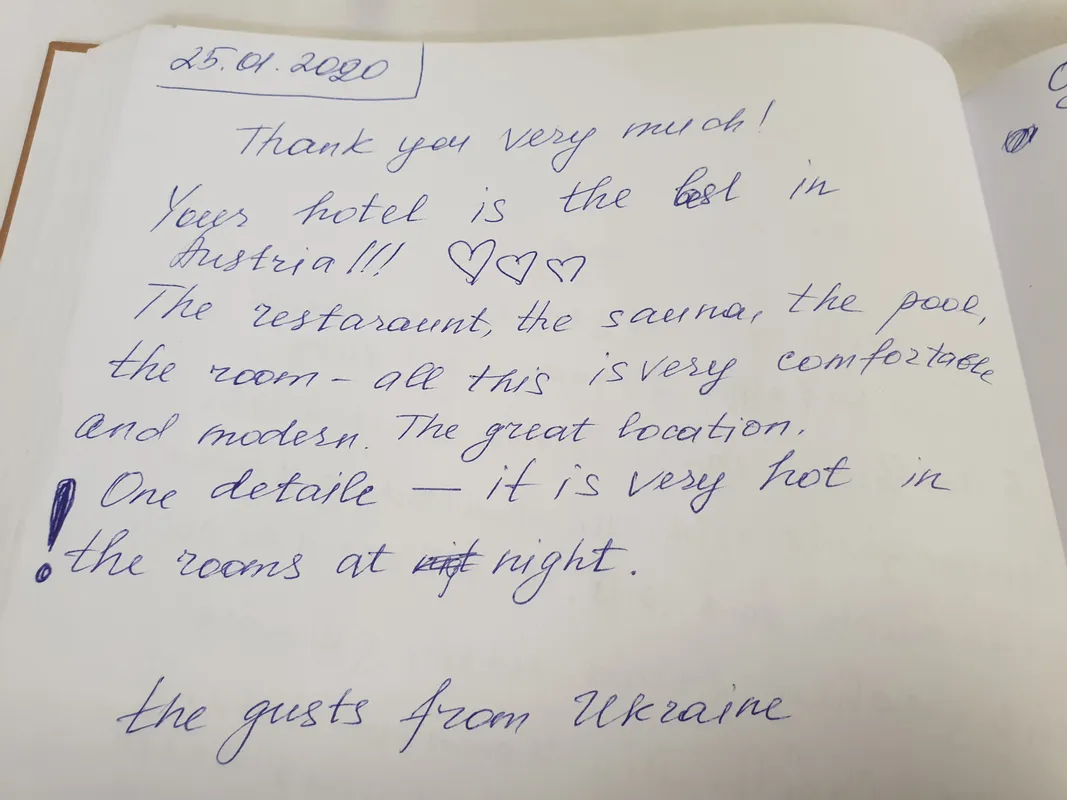 25.01.2020
Thank you very much!
Your hotel is the best in
Austria!!! ♡♡♡
The restaraunt, the sauna, the pool,
the room – all this is very comfortable
and modern. The great location.
! One detaile — it is very hot in
the rooms at night.
the gusts from Ukraine